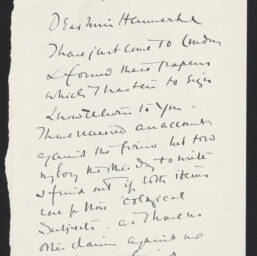 Dear Miss Hammerle
I have just come to London
& found these papers
which I hasten to sign
& now return to you -
I have received an account
against the firm. but told
my boy the other day to write
& find out if both items
were for those
subjects. as I have no
other claim against me